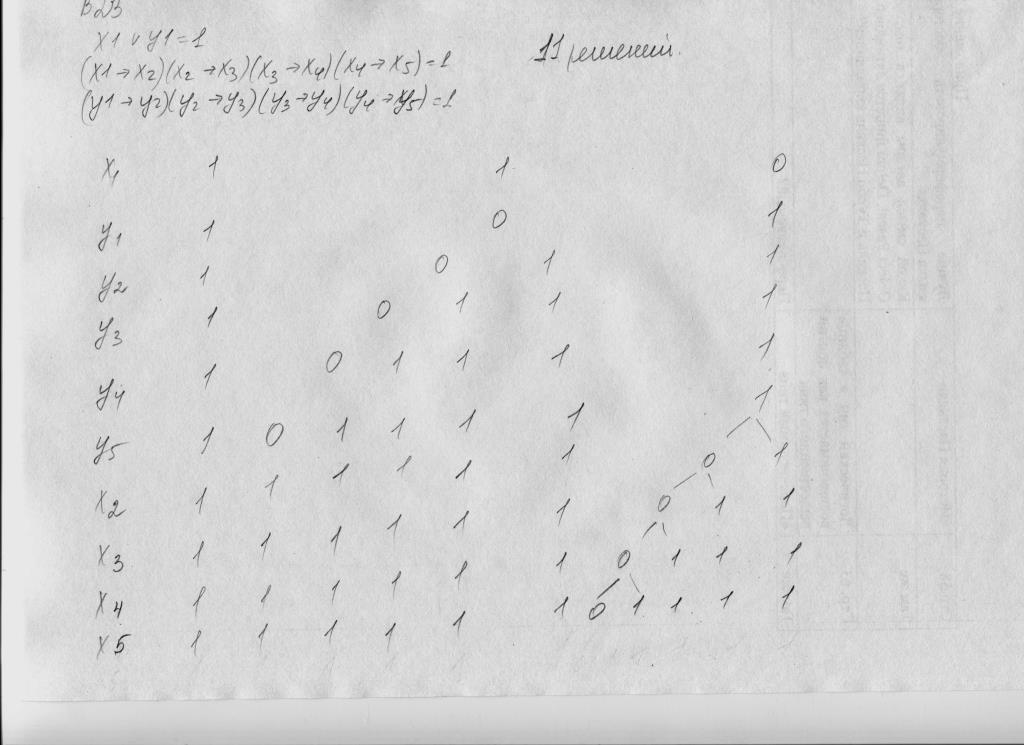 B23
X1 v y1 = 1
(X1 → X2)(X2 → X3)(X3 → X4)(X4 → X5) = 1
(y1 → y2)(y2 → y3)(y3 → y4)(y4 → y5) = 1
11 решений.
X1 1 1 0
y1 1 0 1
y2 1 0 1 1
y3 1 0 1 1 1
y4 1 0 1 1 1 1
y5 1 0 1 1 1 1 1
X2 1 1 1 1 1 1 0 1
X3 1 1 1 1 1 1 0 1 1
X4 1 1 1 1 1 1 0 1 1 1
X5 1 1 1 1 1 1 0 1 1 1 1